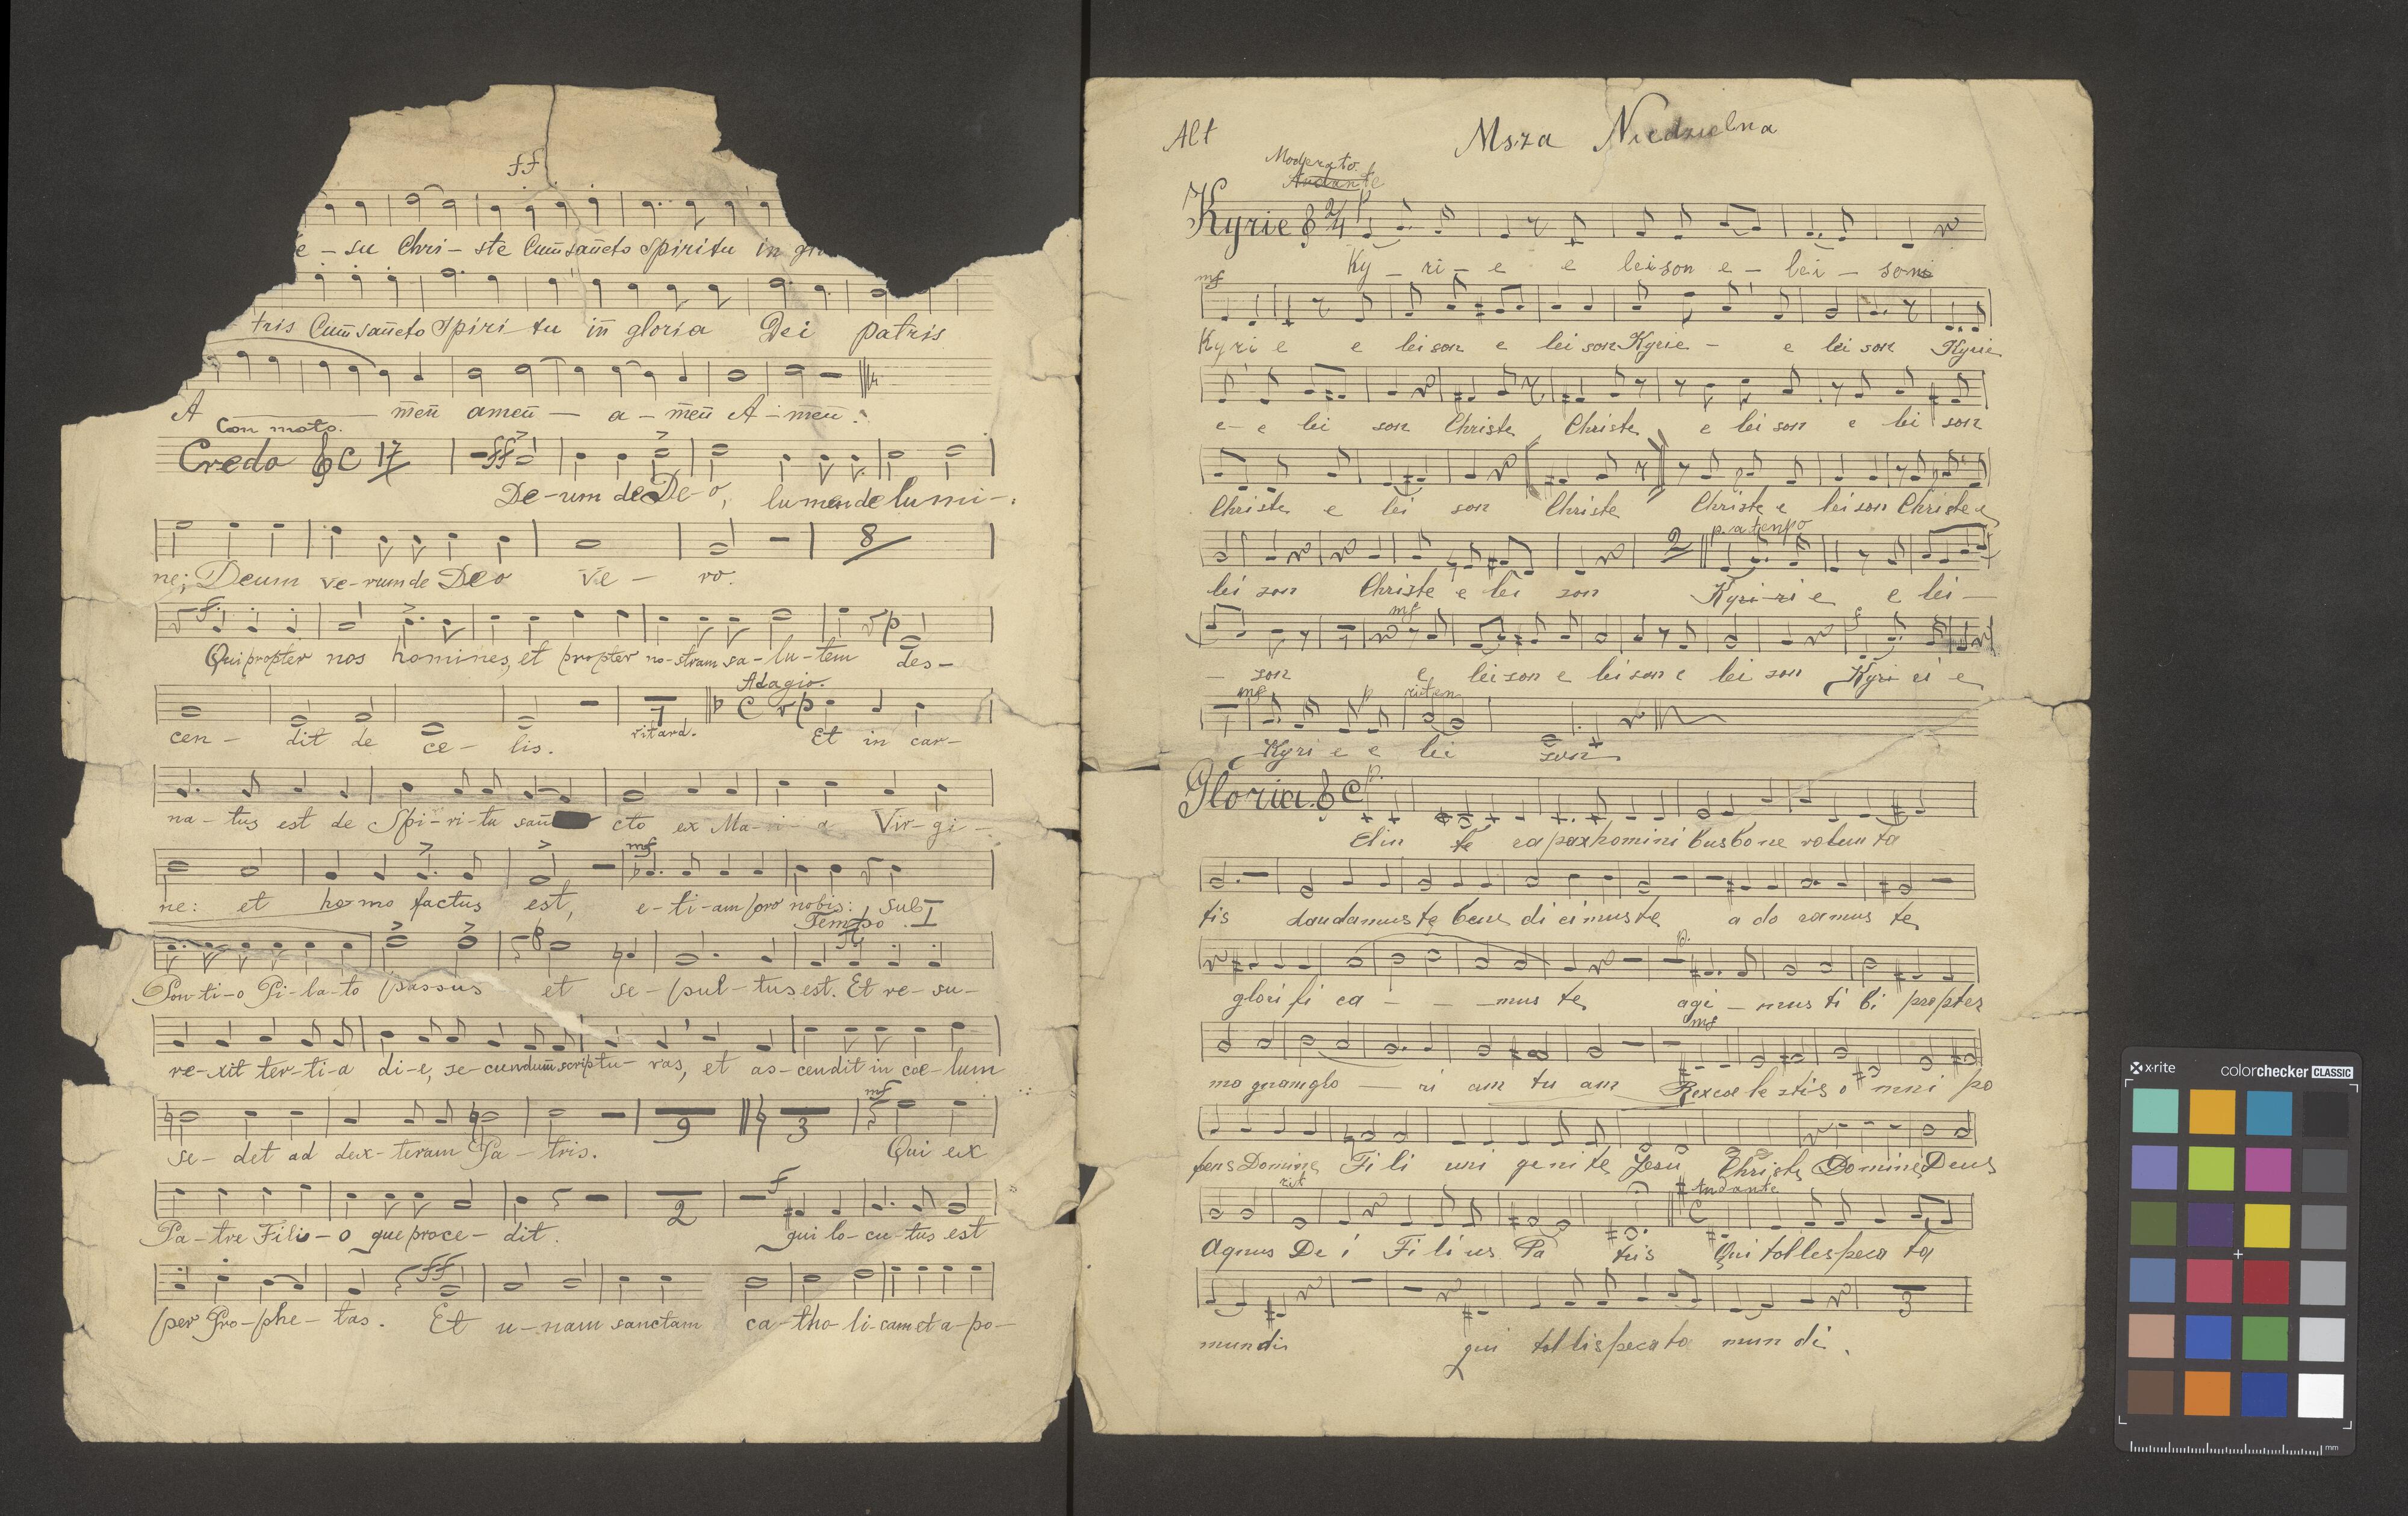 ff
e - su Chri - ste Cum̄ sañcto Spiritu in
tris Cum̄ sañcto Spiri - tu in̄ gloria Dei patris
A men̄ amen̄ - a - men̄ A - men.
Con moto.
Credo C 17 ff
De - um de De - o, lumen de lumi -
8
ne; Deum ve - rum de Deo ve - ro.
f p
Qui propter nos homines, et propter no - stram sa - lu - tem des -
Adagio.
7 C p
cen - dit de ce - lis. ritard. Et in car -
na - tus est de Spi - ri - tu san̄ cto ex Ma - i - a Vir - gi -
mf
ne: et ho - mo factus est, e - ti - am pro nobis: sub
Tempo I
p f
Pon - ti - o Pi - la - to passus et se - pul - tus est. Et re - su -
re - xit ter - ti - a di - e, se - cundum̄ scriptu - ras, et as - cendit in coe - lum
9 3 mf
se - det ad dex - teram Pa - tris. Qui ex
2 f
Pa - tre Fili - o que proce - dit. qui lo - cu - tus est
ff
per Pro - phe - tas. Et u - nam sanctam ca - tho - li - cam et a - po -
Alt Msza Niedzielna
Moderato
Andante
Kyrie 2/4 p
Ky - ri - e e leison e - lei - son
mf
Kyri e e lei son e lei son Kyrie - e lei son Kyrie
e - e lei son Christe Christe e lei son e lei son
Christe e lei son Christe Christe e lei son Christe e
2 p. a tempo
lei son Christe e lei son Kyri - ri e e lei -
mf p
- son e lei son e lei son e lei son Kyri ei e
mf p riten
Kyri e e lei son
Gloria. C p.
Et in te ra pax homini bus bo ne volun ta
tis laudamus te bene di cimus te a do ramus te
p.
glori fi ca - - - mus te agi - mus ti bi propter
mf
ma gnam glo - ri am tu am Rex coe le stis o mni po
tens Domine Fi li uni genite Jesu Christe Domine Deus
rit Andante
C
Agnus De i Fi li us Pa tris Qui tolles peca ta
3
mundi qui tol lis pecata mun di.
x-rite colorchecker CLASSIC
mm